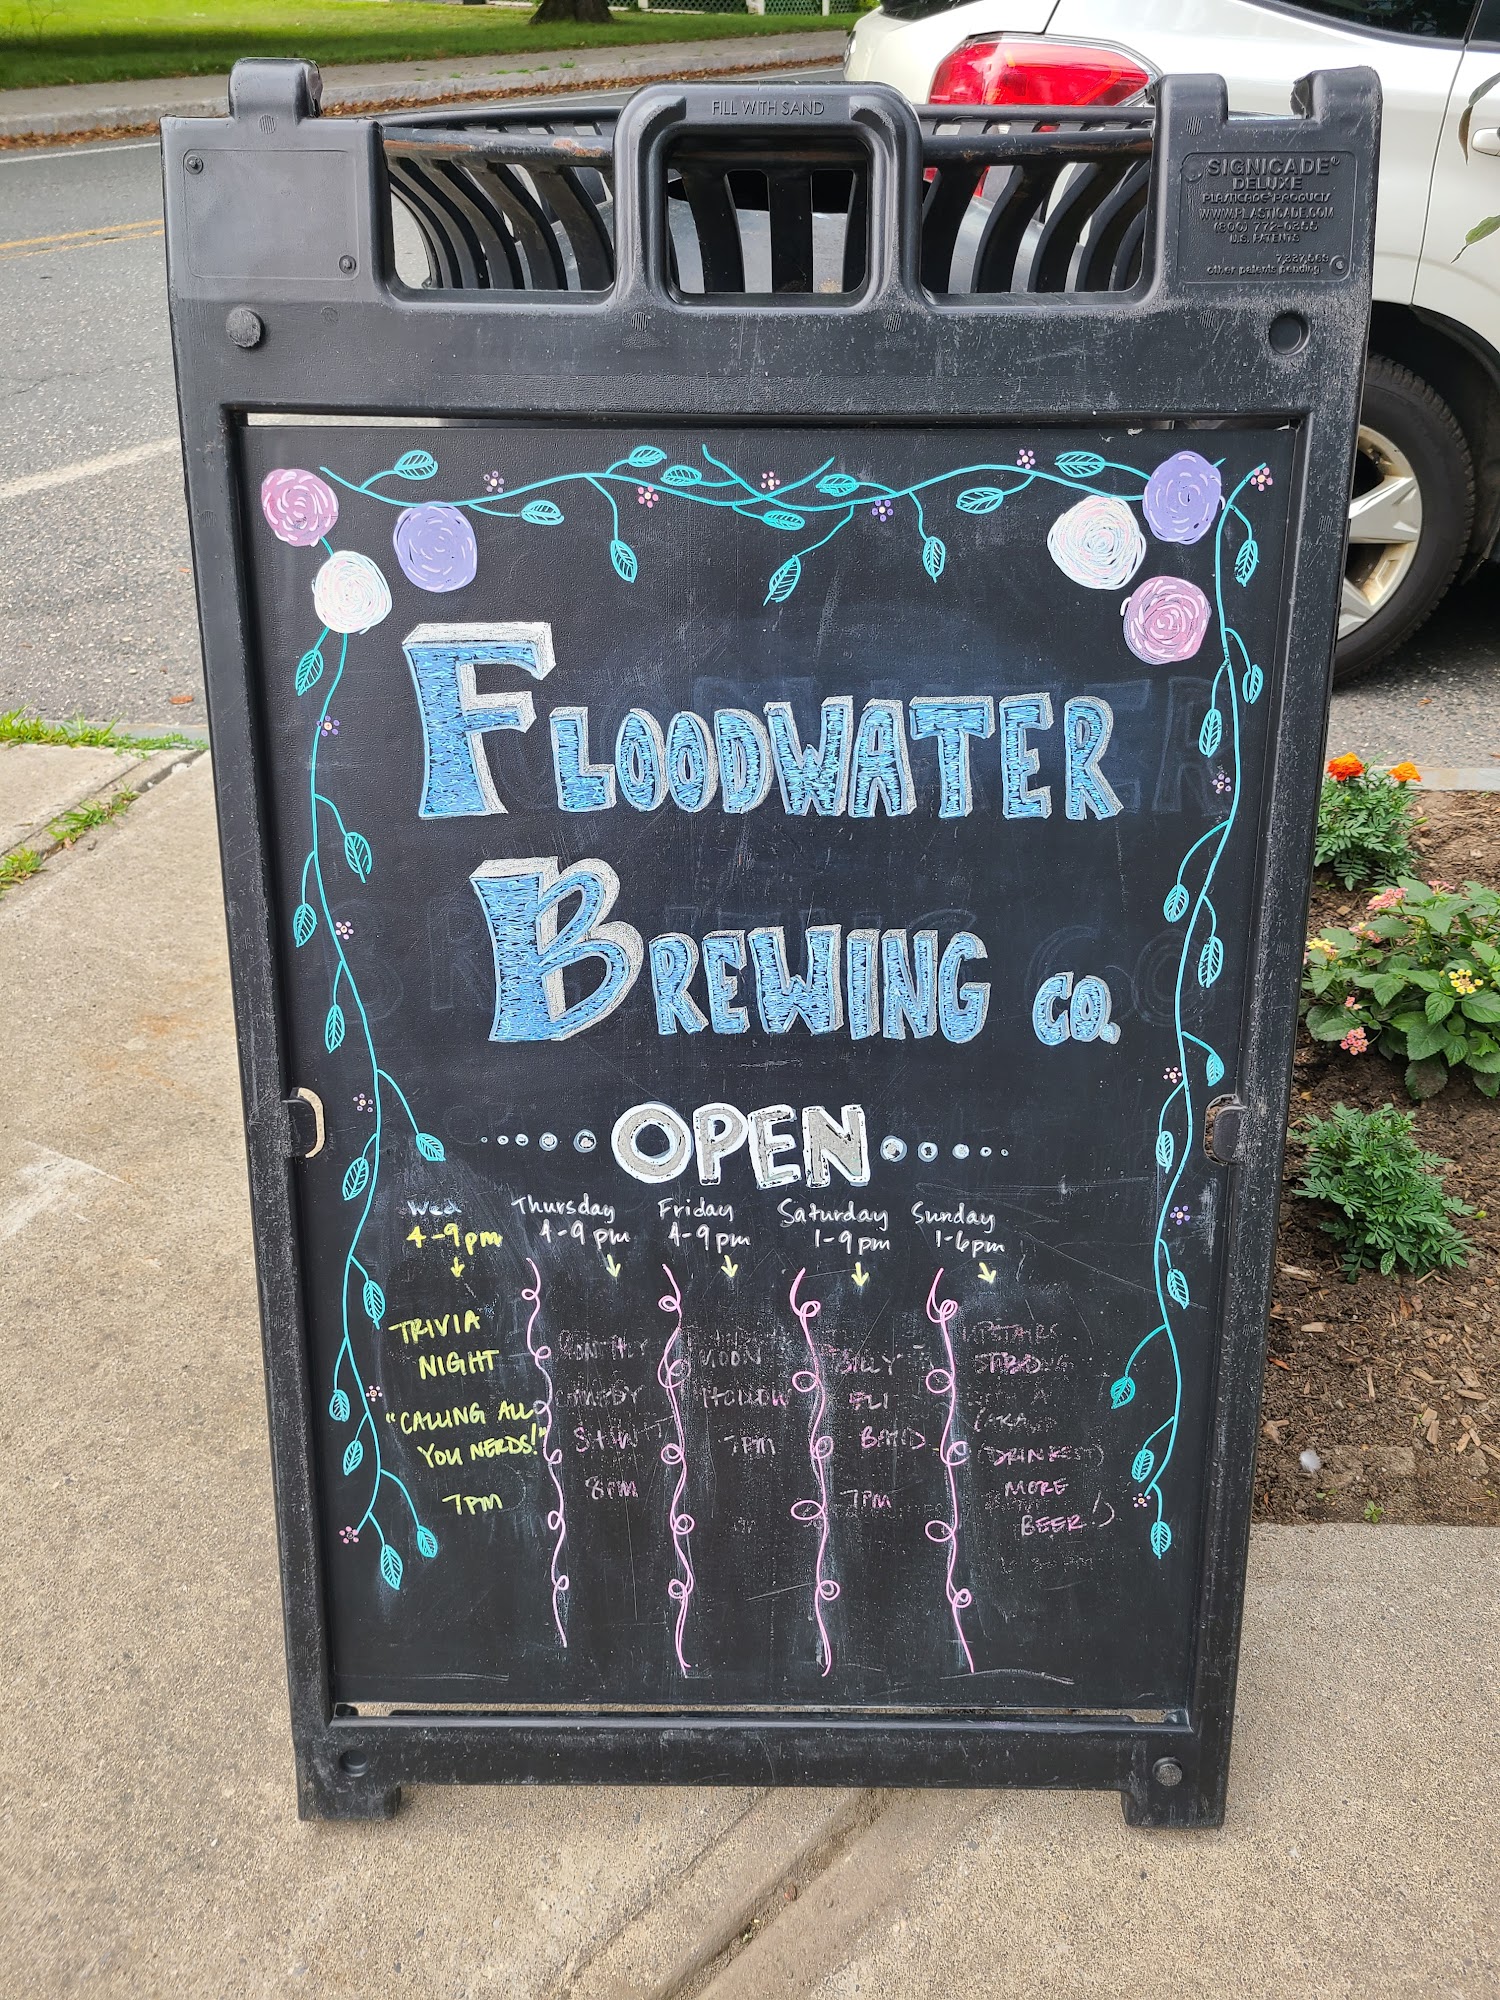 FILL WITH SAND
SIGNICADE®
DELUXE
PLASTICADE PRODUCTS
WWW.PLASTICADE.COM
(800) 772-0355
U.S. PATENTS
7,327,569
other patents pending
FLOODWATER
BREWING CO.
OPEN
Wed
4-9pm
TRIVIA
NIGHT
"CALLING ALL
YOU NERDS!"
7PM
Thursday
4-9pm
MONTHLY
COMEDY
SHOW
8PM
Friday
4-9pm
MOON
HOLLOW
7PM
Saturday
1-9pm
BILLY
ELI
BAND
7PM
Sunday
1-6pm
UPSTAIRS
(AKA
(DRINKEST)
MORE
BEER!)